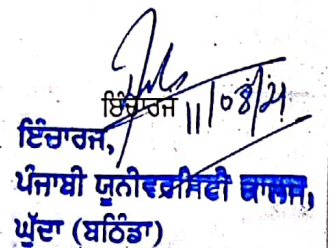 ਇੰਚਾਰਜ 11/08/21
ਇੰਚਾਰਜ,
ਪੰਜਾਬੀ ਯੂਨੀਵਰਸਿਟੀ ਕਾਲਜ,
ਘੁੱਦਾ (ਬਠਿੰਡਾ)